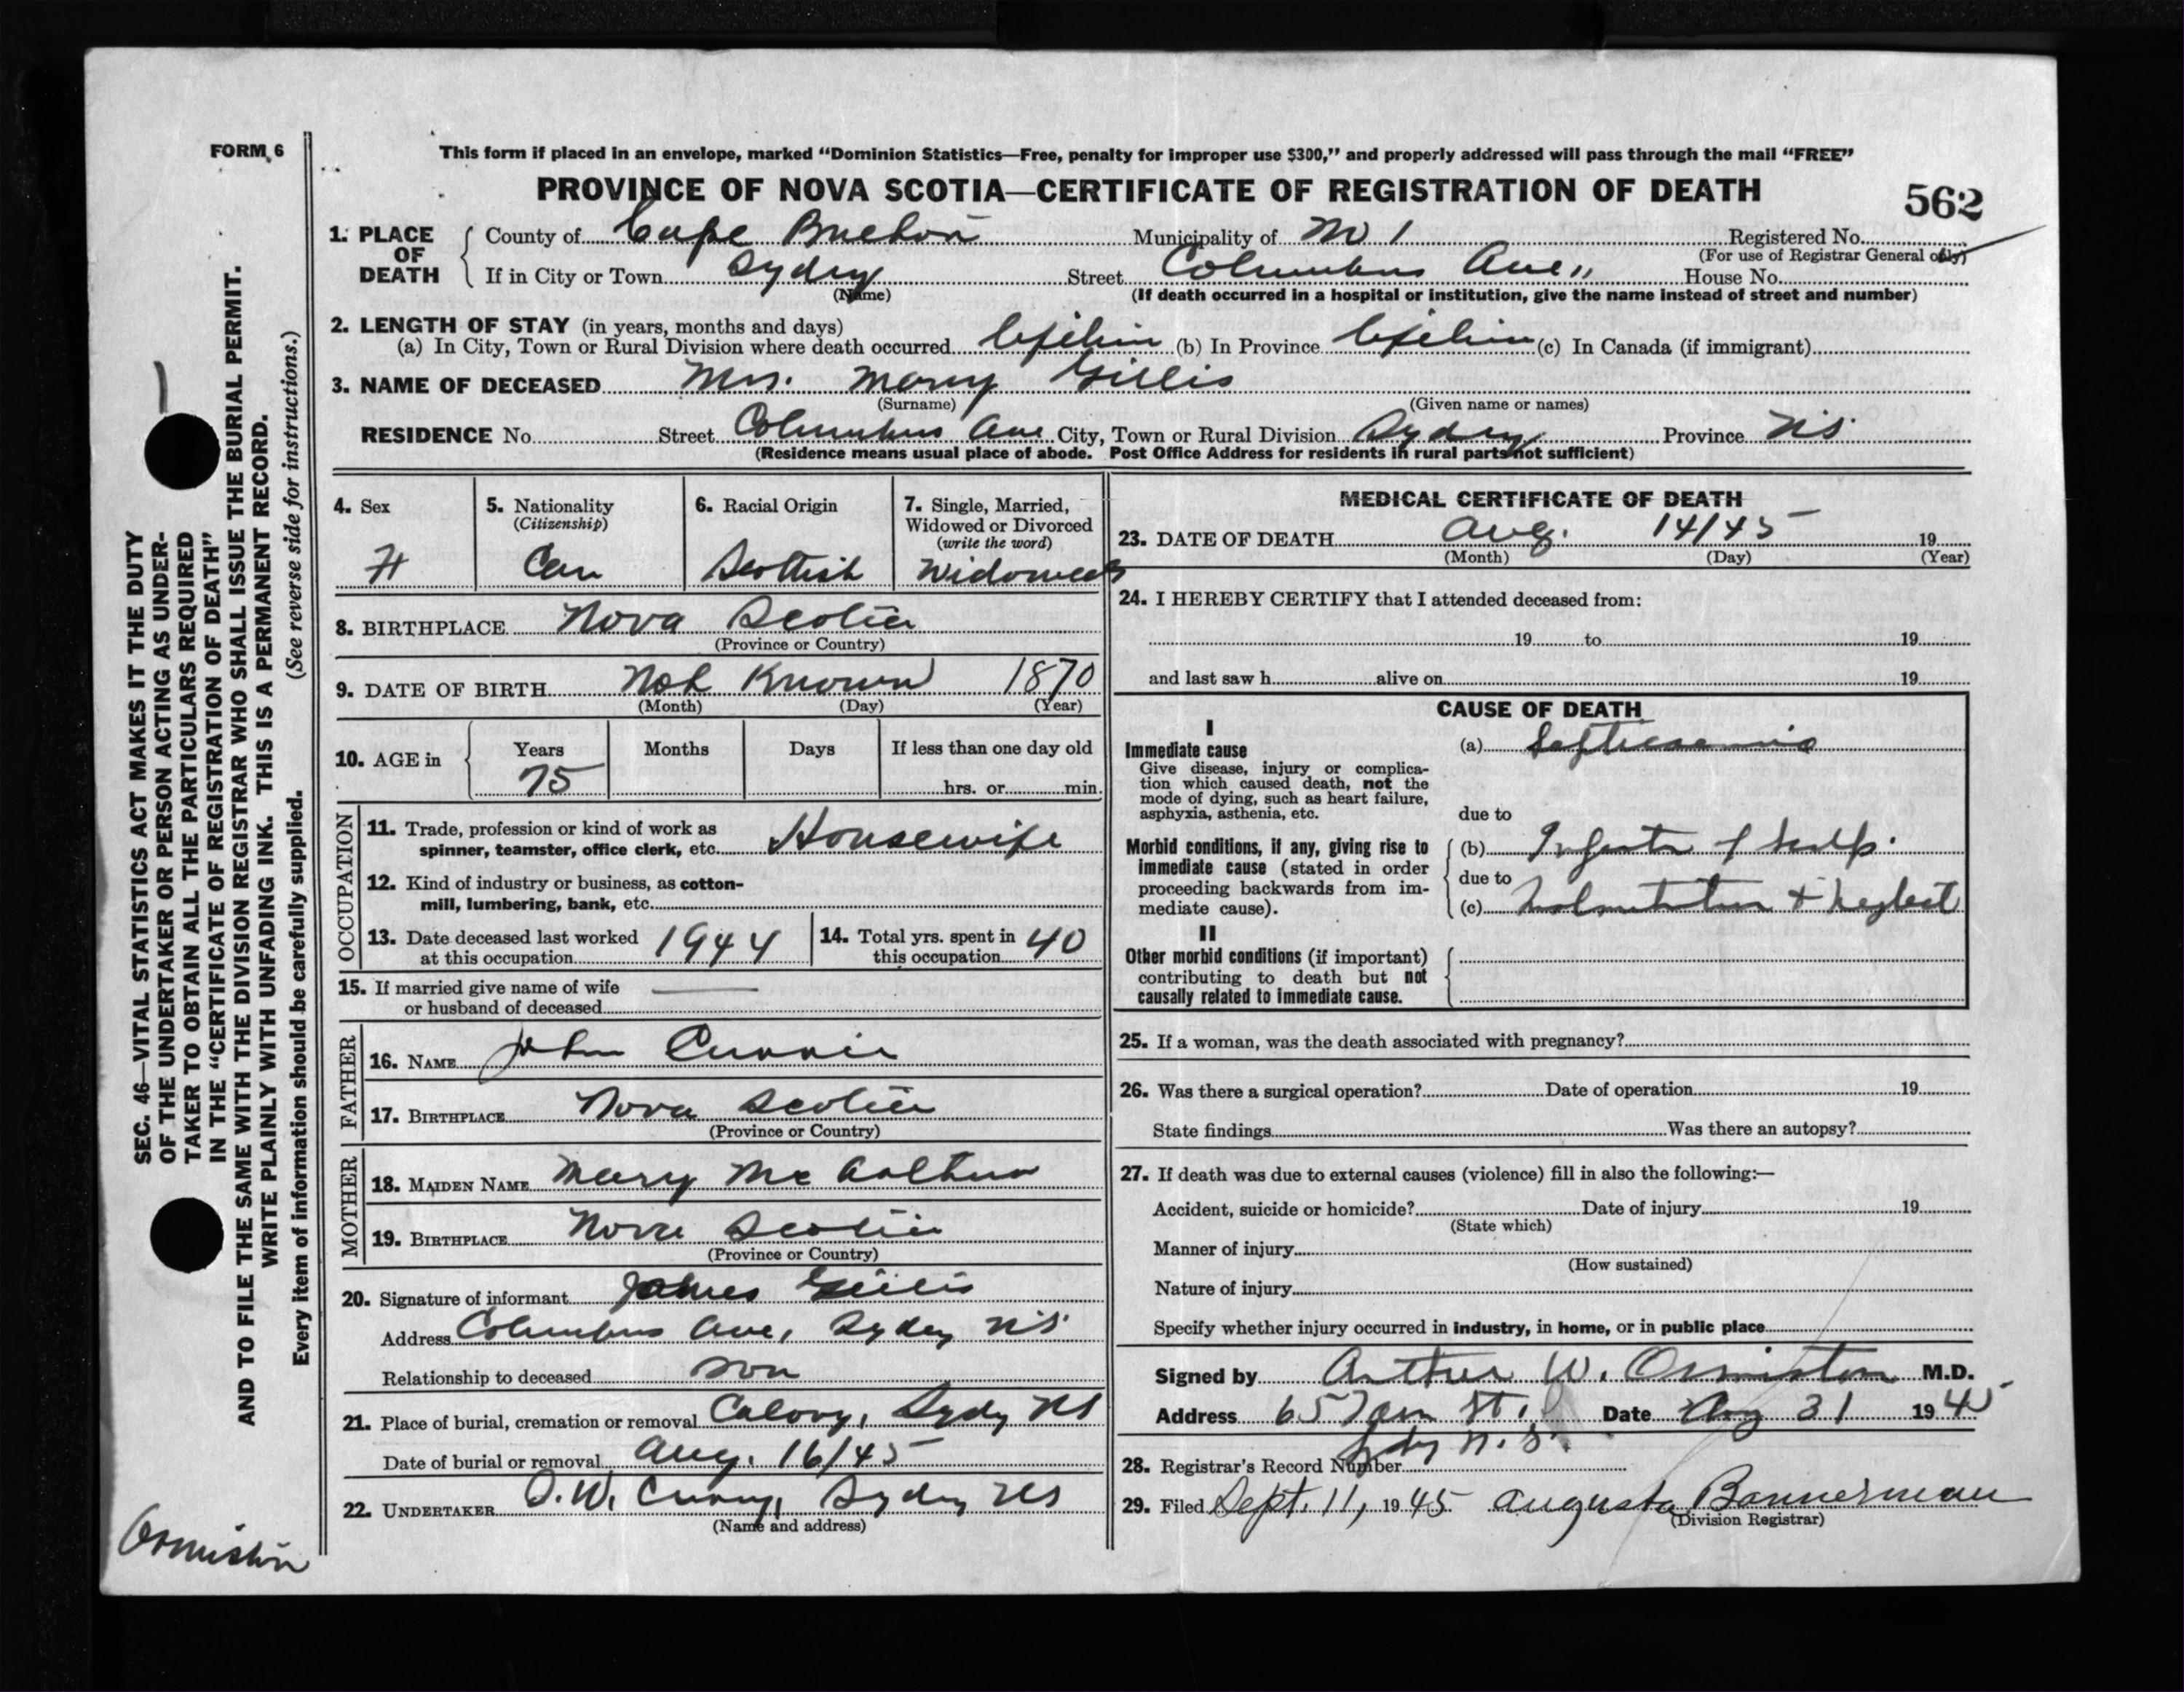 FORM 6
This form if placed in an envelope, marked "Dominion Statistics—Free, penalty for improper use $300," and properly addressed will pass through the mail "FREE"
PROVINCE OF NOVA SCOTIA—CERTIFICATE OF REGISTRATION OF DEATH
562
1. PLACE OF DEATH
County of Cape Breton Municipality of No 1 Registered No.
(For use of Registrar General only)
If in City or Town Sydney Street Columbus Ave,, House No.
(Name) (If death occurred in a hospital or institution, give the name instead of street and number)
2. LENGTH OF STAY (in years, months and days)
(a) In City, Town or Rural Division where death occurred Lifetime (b) In Province Lifetime (c) In Canada (if immigrant)
3. NAME OF DECEASED Mrs. Mary Gillis
(Surname) (Given name or names)
RESIDENCE No. Street Columbus Ave City, Town or Rural Division Sydney Province NS
(Residence means usual place of abode. Post Office Address for residents in rural parts not sufficient)
4. Sex
F
5. Nationality
(Citizenship)
Can
6. Racial Origin
Scottish
7. Single, Married,
Widowed or Divorced
(write the word)
Widowed
8. BIRTHPLACE Nova Scotia
(Province or Country)
9. DATE OF BIRTH Not Known 1870
(Month) (Day) (Year)
10. AGE in
Years Months Days If less than one day old
75 hrs. or min.
OCCUPATION
11. Trade, profession or kind of work as
spinner, teamster, office clerk, etc. Housewife
12. Kind of industry or business, as cotton-
mill, lumbering, bank, etc.
13. Date deceased last worked
at this occupation 1944
14. Total yrs. spent in
this occupation 40
15. If married give name of wife
or husband of deceased
FATHER
16. NAME John Currie
17. BIRTHPLACE Nova Scotia
(Province or Country)
MOTHER
18. MAIDEN NAME Mary McArthur
19. BIRTHPLACE Nova Scotia
(Province or Country)
20. Signature of informant James Gillis
Address Columbus Ave, Sydney NS
Relationship to deceased son
21. Place of burial, cremation or removal Calvry, Sydy NS
Date of burial or removal Aug. 16/45
22. UNDERTAKER W. Curry, Sydney NS
(Name and address)
MEDICAL CERTIFICATE OF DEATH
23. DATE OF DEATH Aug. 14/45 19
(Month) (Day) (Year)
24. I HEREBY CERTIFY that I attended deceased from:
19 to 19
and last saw h alive on 19
CAUSE OF DEATH
I
Immediate cause
Give disease, injury or complica-
tion which caused death, not the
mode of dying, such as heart failure,
asphyxia, asthenia, etc.
(a) Septicaemia
due to
Morbid conditions, if any, giving rise to
immediate cause (stated in order
proceeding backwards from im-
mediate cause).
(b) Infection of scalp.
due to
(c) Malnutrition + neglect
II
Other morbid conditions (if important)
contributing to death but not
causally related to immediate cause.
25. If a woman, was the death associated with pregnancy?
26. Was there a surgical operation? Date of operation 19
State findings Was there an autopsy?
27. If death was due to external causes (violence) fill in also the following:—
Accident, suicide or homicide? Date of injury 19
(State which)
Manner of injury
(How sustained)
Nature of injury
Specify whether injury occurred in industry, in home, or in public place
Signed by Arthur W. Ormiston M.D.
Address 65 St., Date Aug 31 1945
Sydy N.S.
28. Registrar's Record Number
29. Filed Sept. 11, 1945 Augusta Bannerman
(Division Registrar)
SEC. 46—VITAL STATISTICS ACT MAKES IT THE DUTY
OF THE UNDERTAKER OR PERSON ACTING AS UNDER-
TAKER TO OBTAIN ALL THE PARTICULARS REQUIRED
IN THE "CERTIFICATE OF REGISTRATION OF DEATH"
AND TO FILE THE SAME WITH THE DIVISION REGISTRAR WHO SHALL ISSUE THE BURIAL PERMIT.
WRITE PLAINLY WITH UNFADING INK. THIS IS A PERMANENT RECORD.
Every item of information should be carefully supplied. (See reverse side for instructions.)
Ormiston